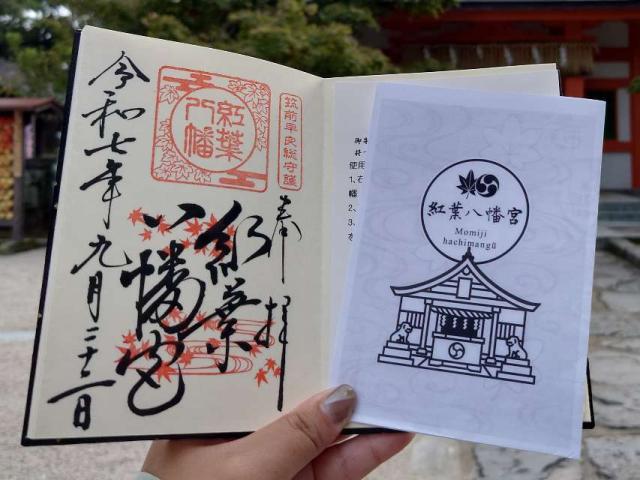 筑前早良総守護
奉拝
紅葉
八幡
紅葉
八幡宮
令和七年九月二十一日
1、
2、
3、
紅葉八幡宮
Momiji
hachimangū